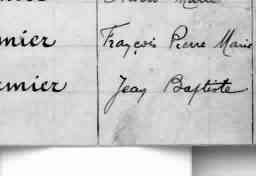 Marie
mier François Pierre Marie
emier Jean Baptiste